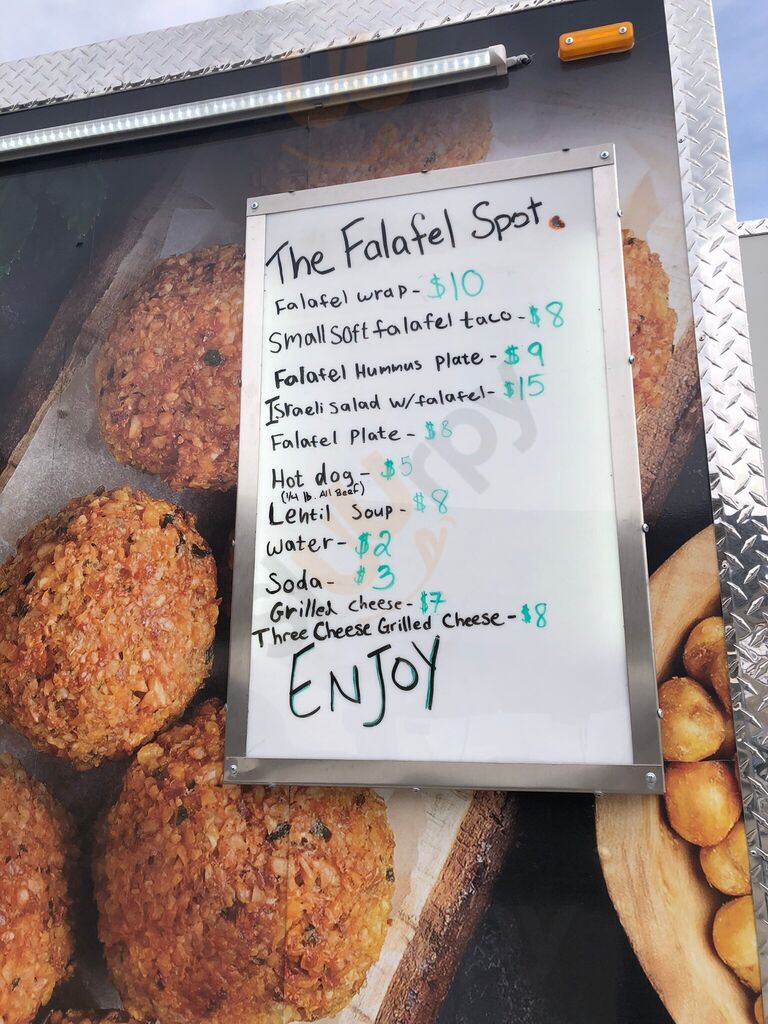 The Falafel Spot.
Falafel wrap - $10
Small Soft falafel taco - $8
Falafel Hummus Plate - $9
Israeli Salad w/falafel - $15
Falafel Plate - $8
Hot dog - $5
(1/4 lb. All Beef)
Lentil Soup - $8
water - $2
Soda - $3
Grilled cheese - $7
Three Cheese Grilled Cheese - $8
ENJOY